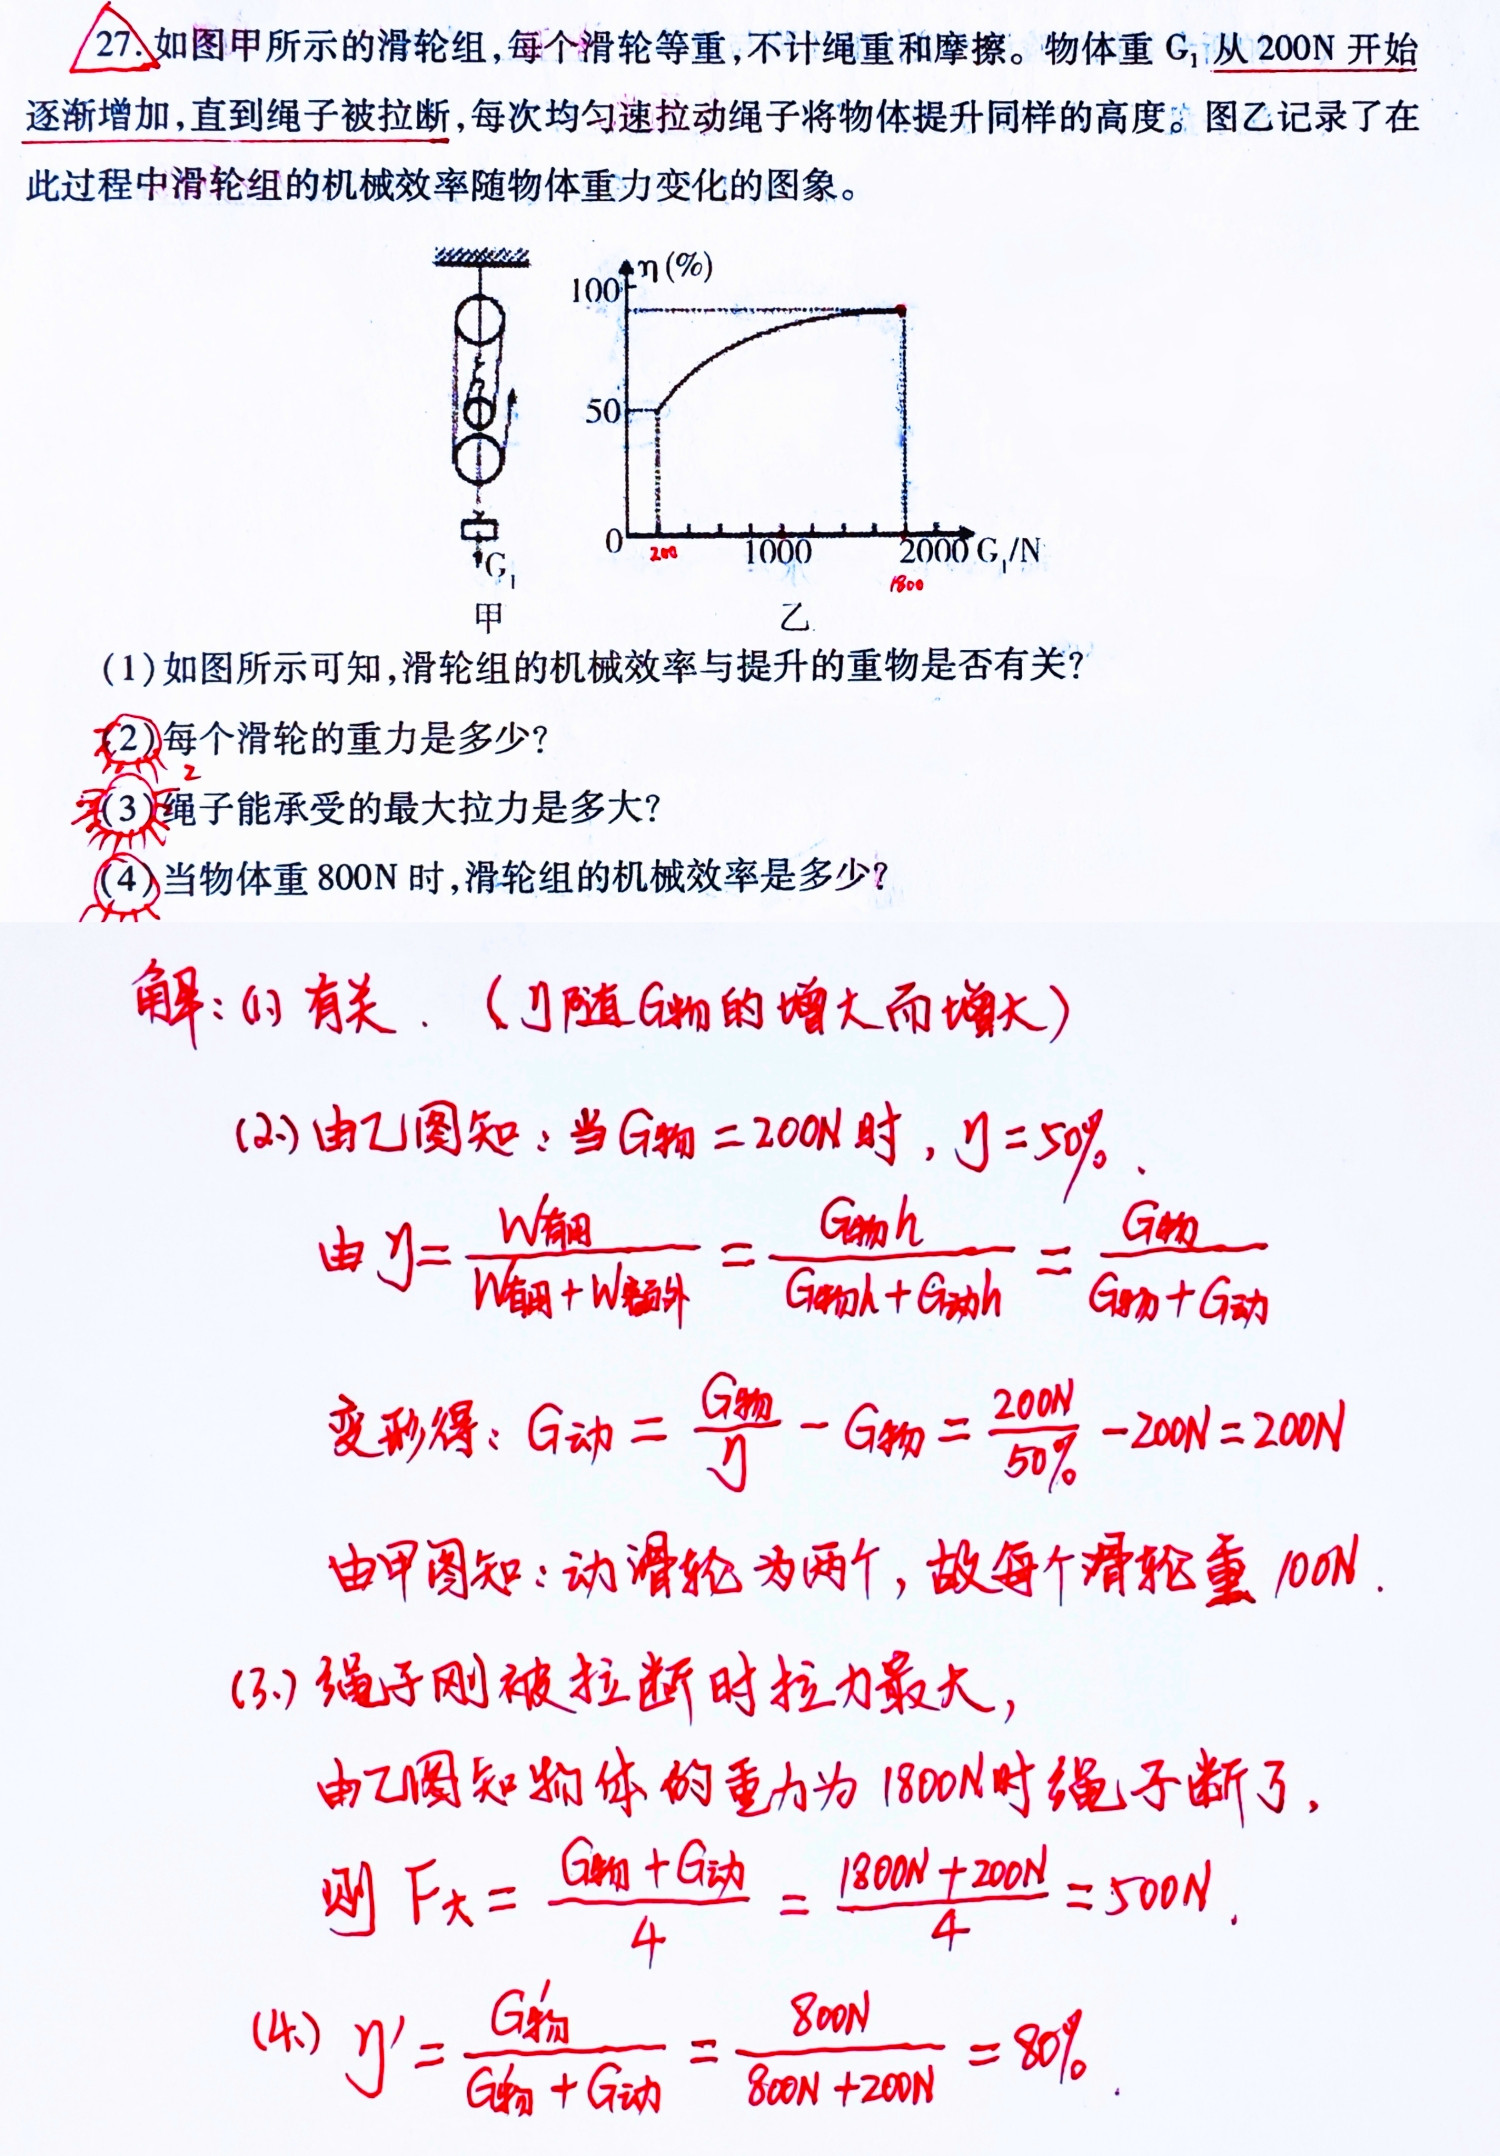 27. 如图甲所示的滑轮组,每个滑轮等重,不计绳重和摩擦。物体重 G₁ 从 200N 开始
逐渐增加,直到绳子被拉断,每次均匀速拉动绳子将物体提升同样的高度。图乙记录了在
此过程中滑轮组的机械效率随物体重力变化的图象。
η(%)
100
50
0
200
1000
2000 G₁/N
1800
G₁
甲
乙
(1)如图所示可知,滑轮组的机械效率与提升的重物是否有关?
(2)每个滑轮的重力是多少?
2
(3)绳子能承受的最大拉力是多大?
(4)当物体重 800N 时,滑轮组的机械效率是多少?
解:(1) 有关.(η随G物的增大而增大)
(2.) 由乙图知:当G物=200N时,η=50%.
由 η= W有用/(W有用+W额外) = G物h/(G物h+G动h) = G物/(G物+G动)
变形得:G动= G物/η - G物= 200N/50% -200N=200N
由甲图知:动滑轮为两个,故每个滑轮重100N.
(3.) 绳子刚被拉断时拉力最大,
由乙图知物体的重力为1800N时绳子断了,
则 F大= (G物+G动)/4 = (1800N+200N)/4 =500N.
(4.) η′= G′物/(G′物+G动) = 800N/(800N+200N) =80%.